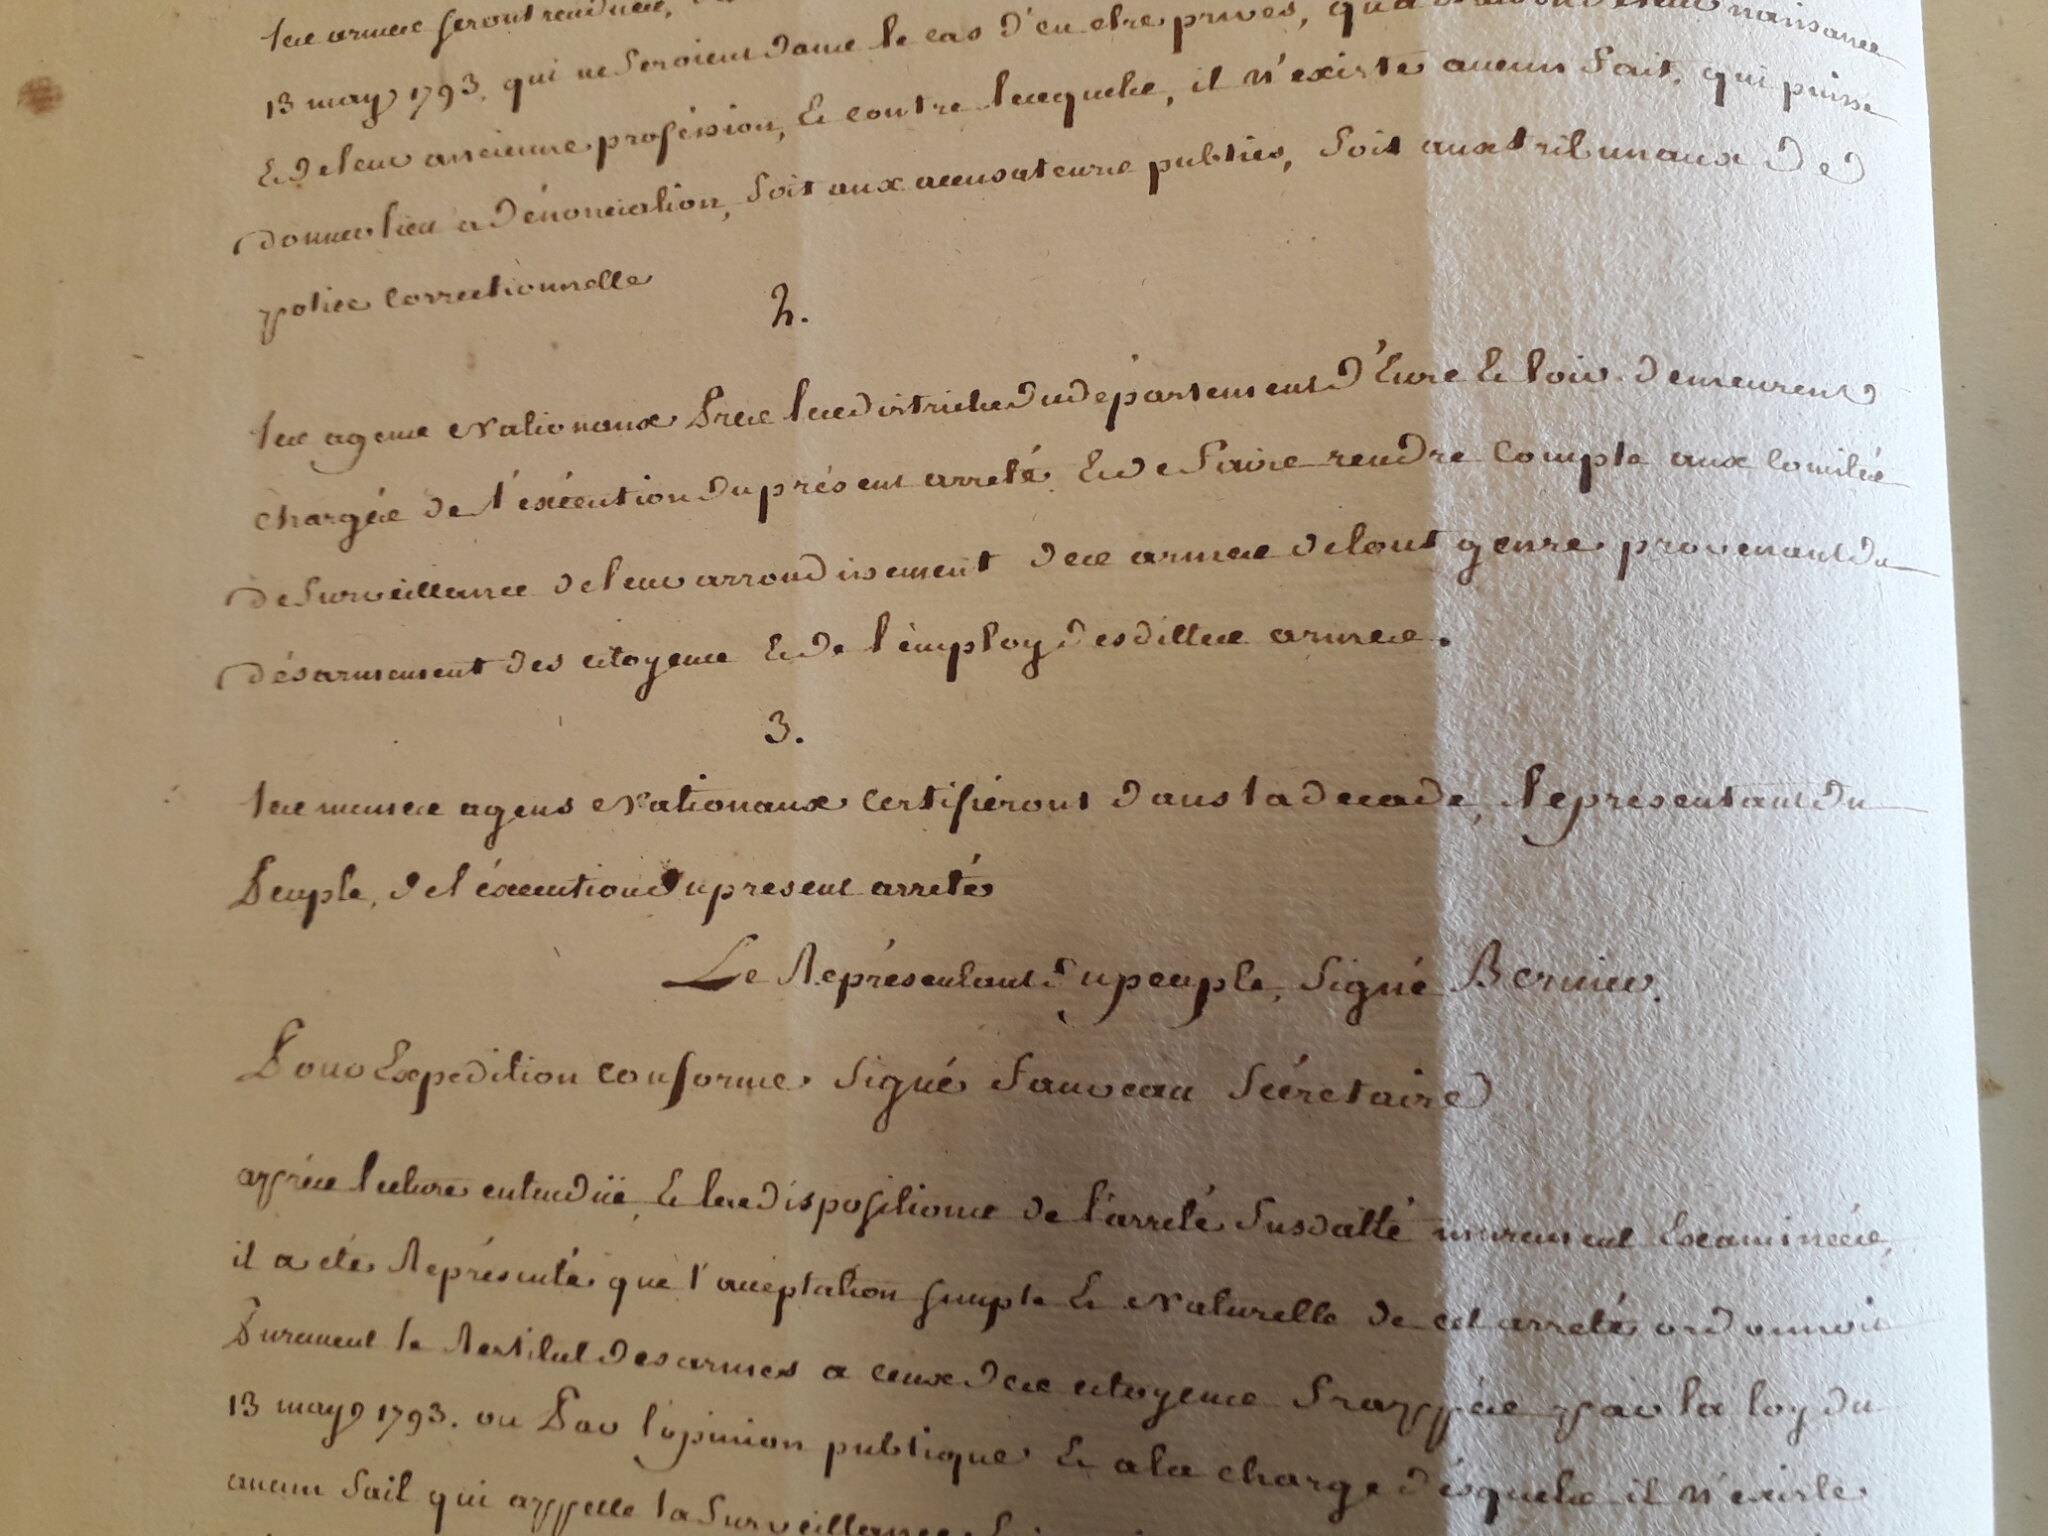 les armes seront rendues,
13 may 1793. qui ne seroient dans le cas d'en etre privés, qu'a raison de leur naissance
Et de leur ancienne proféssion, Et contre lesquels, il n'existe aucun fait, qui puisse
donner lieu a dénonciation, soit aux accusateurs publics, soit aux tribunaux de
police correctionnelle
2.
les agens Nationaux Près les districts du département d'Eure Et loir demeurent
chargés de l'exécution du présent arreté Et de faire rendre compte aux Comités
de Surveillance de leur arrondissement des armes de tout genre provenant du
désarmement des citoyens Et de l'employ desdittes armes.
3.
les mêmes agens Nationaux Certifiéront dans la decade, Représentant du
Peuple, de l'éxecution du present arreté
Le Représentant du peuple, Signé Bernier.
Pour Expedition conforme Signé Fauveau Sécretaire
après lecture entenduë, Et les dispositions de l'arreté Susdatté murement Examinées,
il a été Représenté que l'acceptation simple Et Naturelle de cet arreté ordonnoit
Purement le Restitut des armes a ceux des citoyens frappés par la loy du
13 may 1793. ou Par l'opinion publique Et a la charge desquels il n'existe
aucun fait qui appelle la Surveillance